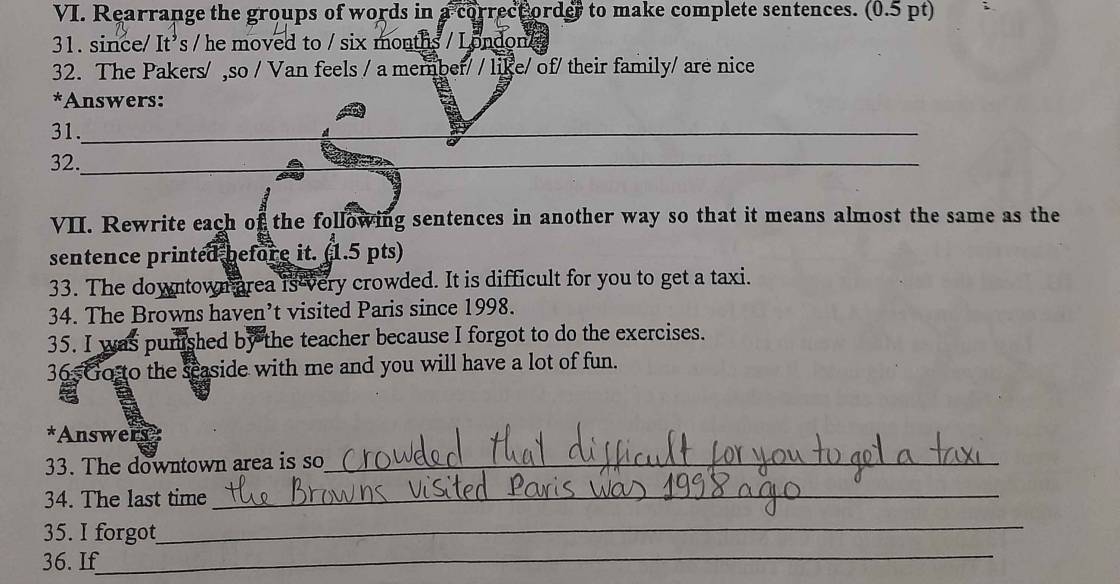 VI. Rearrange the groups of words in a correct order to make complete sentences. (0.5 pt)
31. since/ It's / he moved to / six months / London/
32. The Pakers/ ,so / Van feels / a member/ / like/ of/ their family/ are nice
*Answers:
31.
32.
VII. Rewrite each of the following sentences in another way so that it means almost the same as the
sentence printed before it. (1.5 pts)
33. The downtown area is very crowded. It is difficult for you to get a taxi.
34. The Browns haven't visited Paris since 1998.
35. I was punished by the teacher because I forgot to do the exercises.
36. Go to the seaside with me and you will have a lot of fun.
*Answers:
33. The downtown area is so crowded that difficult for you to get a taxi
34. The last time the Browns visited Paris was 1998 ago
35. I forgot
36. If